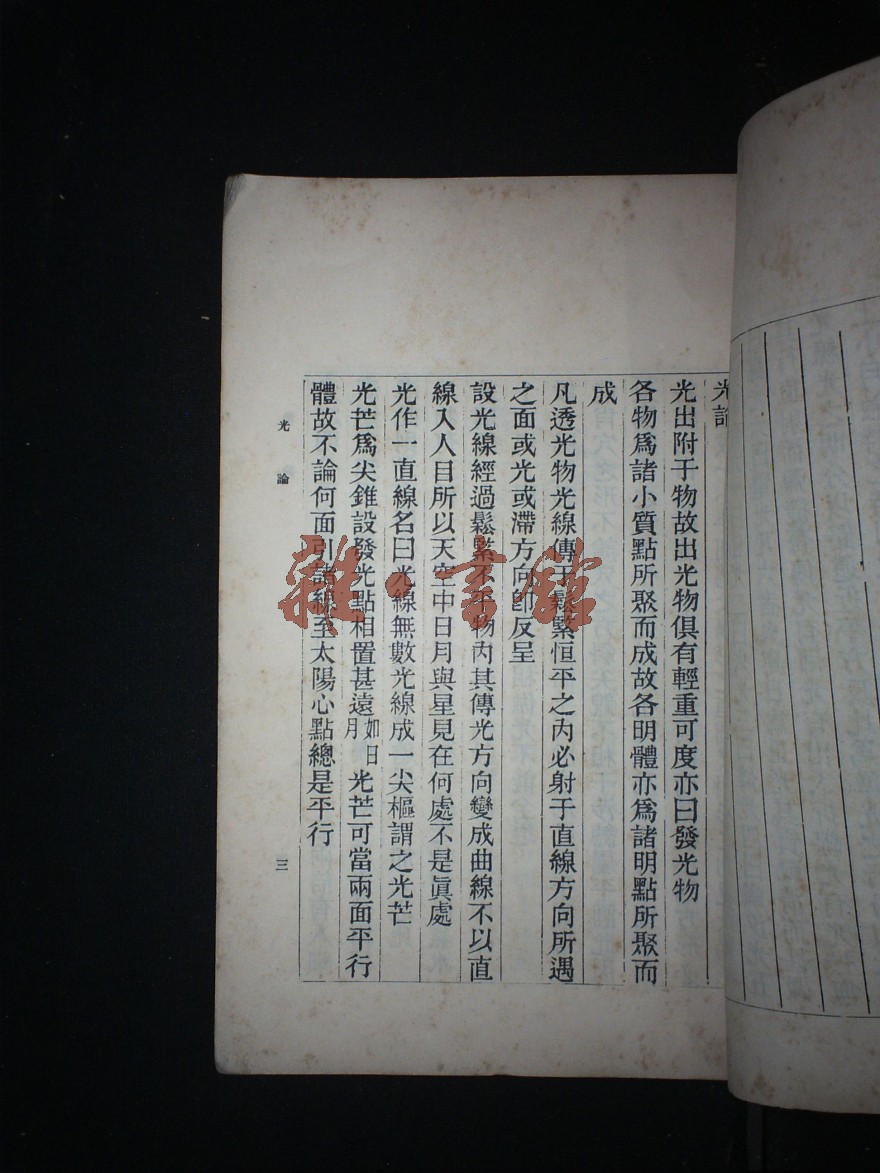 光論
光出附于物故出光物俱有輕重可度亦曰發光物
各物爲諸小質點所聚而成故各明體亦爲諸明點所聚而
成
凡透光物光線傳于鬆緊恒平之內必射于直線方向所遇
之面或光或滯方向卽反呈
設光線經過鬆緊不平物內其傳光方向變成曲線不以直
線入人目所以天空中日月與星見在何處不是眞處
光作一直線名曰光線無數光線成一尖樞謂之光芒
光芒爲尖錐設發光點相置甚遠如日月光芒可當兩面平行
體故不論何面引諸線至太陽心點總是平行
光論
三
雜書館